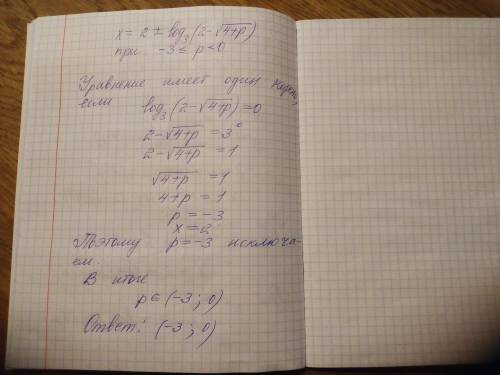 x = 2 ± log₃(2-√4+p)
при -3 ≤ p < 0
Уравнение имеет один корень,
если log₃(2-√4+p)=0
2-√4+p = 3⁰
2-√4+p = 1
√4+p = 1
4+p = 1
p = -3
x = 2
Поэтому p = -3 исключа-
ем.
В итоге
p ∈ (-3; 0)
Ответ: (-3; 0)